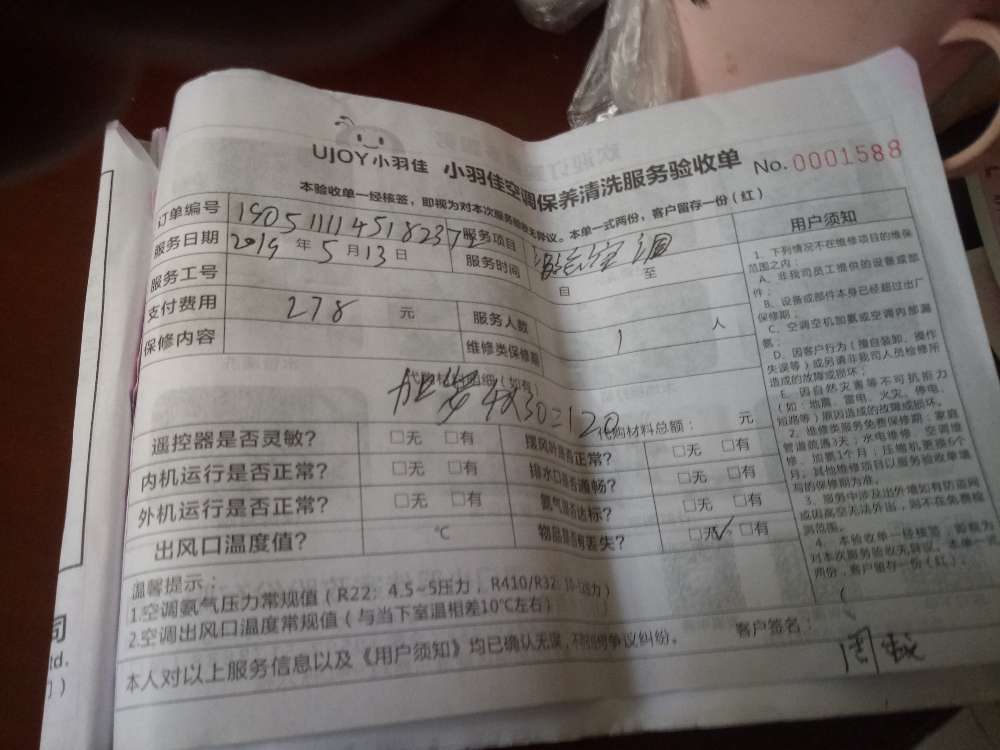 UJOY小羽佳 小羽佳空调保养清洗服务验收单 No.0001588
本验收单一经核签，即视为对本次服务验收无异议。本单一式两份，客户留存一份（红）
订单编号
服务项目
空调
服务日期 2019 年 5 月 13 日
服务时间 自 至
服务工号
支付费用 278 元
服务人数 1 人
保修内容
维修类保修期
30=120
代购材料总额： 元
遥控器是否灵敏？ □无 □有
□无 □有
内机运行是否正常？ □无 □有
排水口是否通畅？ □无 □有
外机运行是否正常？ □无 □有
氨气是否达标？ □无 □有
出风口温度值？ ℃
物品是否有丢失？ □无✓ □有
温馨提示：
1.空调氨气压力常规值（R22：4.5~5压力，R410/R32:
2.空调出风口温度常规值（与当下室温相差10℃左右）
本人对以上服务信息以及《用户须知》均已确认无误，不到得争议纠纷。
客户签名：
用户须知
1、下列情况不在维修项目的维保
范围之内：
A、非我司员工提供的设备或部
件；
B、设备或部件本身已经超过出厂
保修期；
C、空调空机加氨或空调内部漏
氨；
D、因客户行为（擅自装卸、操作
失误等）或另请非我司人员检修所
造成的故障或损坏；
E、因自然灾害等不可抗拒力
（如：地震、雷电、火灾、停电、
短路等）原因造成的故障或损坏。
2、维修类服务免费保修期：家庭
管道疏通3天；水电维修、空调维
修、加氨1个月；压缩机更换6个
月；其他维修项目以服务验收单填
写的保修期为准。
3、服务中涉及出外墙如有防盗网
或因高空无法外出，则不在免费检
测范围。
4、本验收单一经核签，即视为
对本次服务验收无异议。本单一式
两份，客户留存一份（红）。